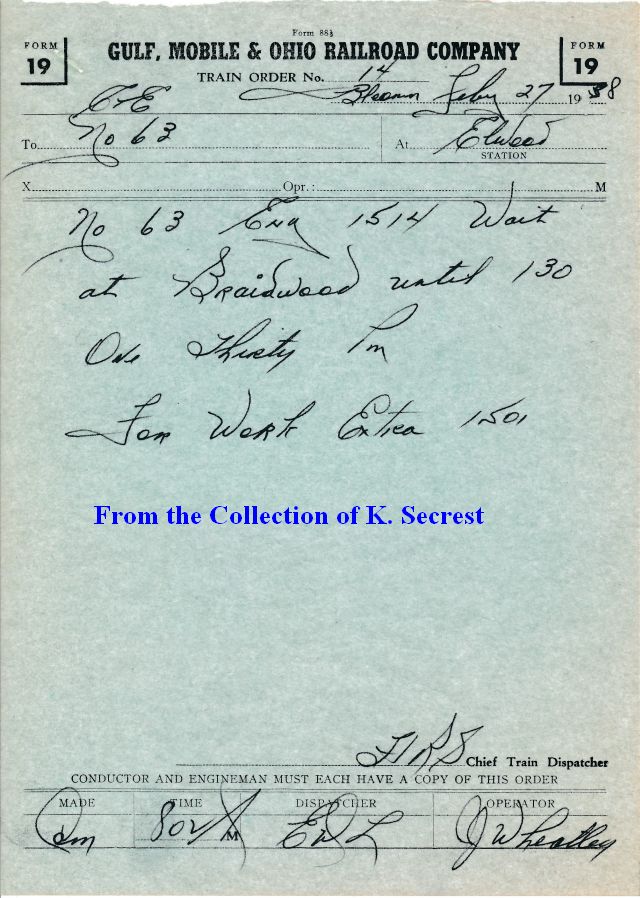 Form 88½
FORM 19
GULF, MOBILE & OHIO RAILROAD COMPANY
FORM 19
TRAIN ORDER No. 14
Feby 27 1958
C+E
To No 63 At Elwood
STATION
X Opr.: M
No 63 Eng 1514 Wait
at Braidwood until 130
One Thirty Pm
For Work Extra 1501
From the Collection of K. Secrest
Chief Train Dispatcher
CONDUCTOR AND ENGINEMAN MUST EACH HAVE A COPY OF THIS ORDER
MADE TIME DISPATCHER OPERATOR
Com 802 M J Wheatley